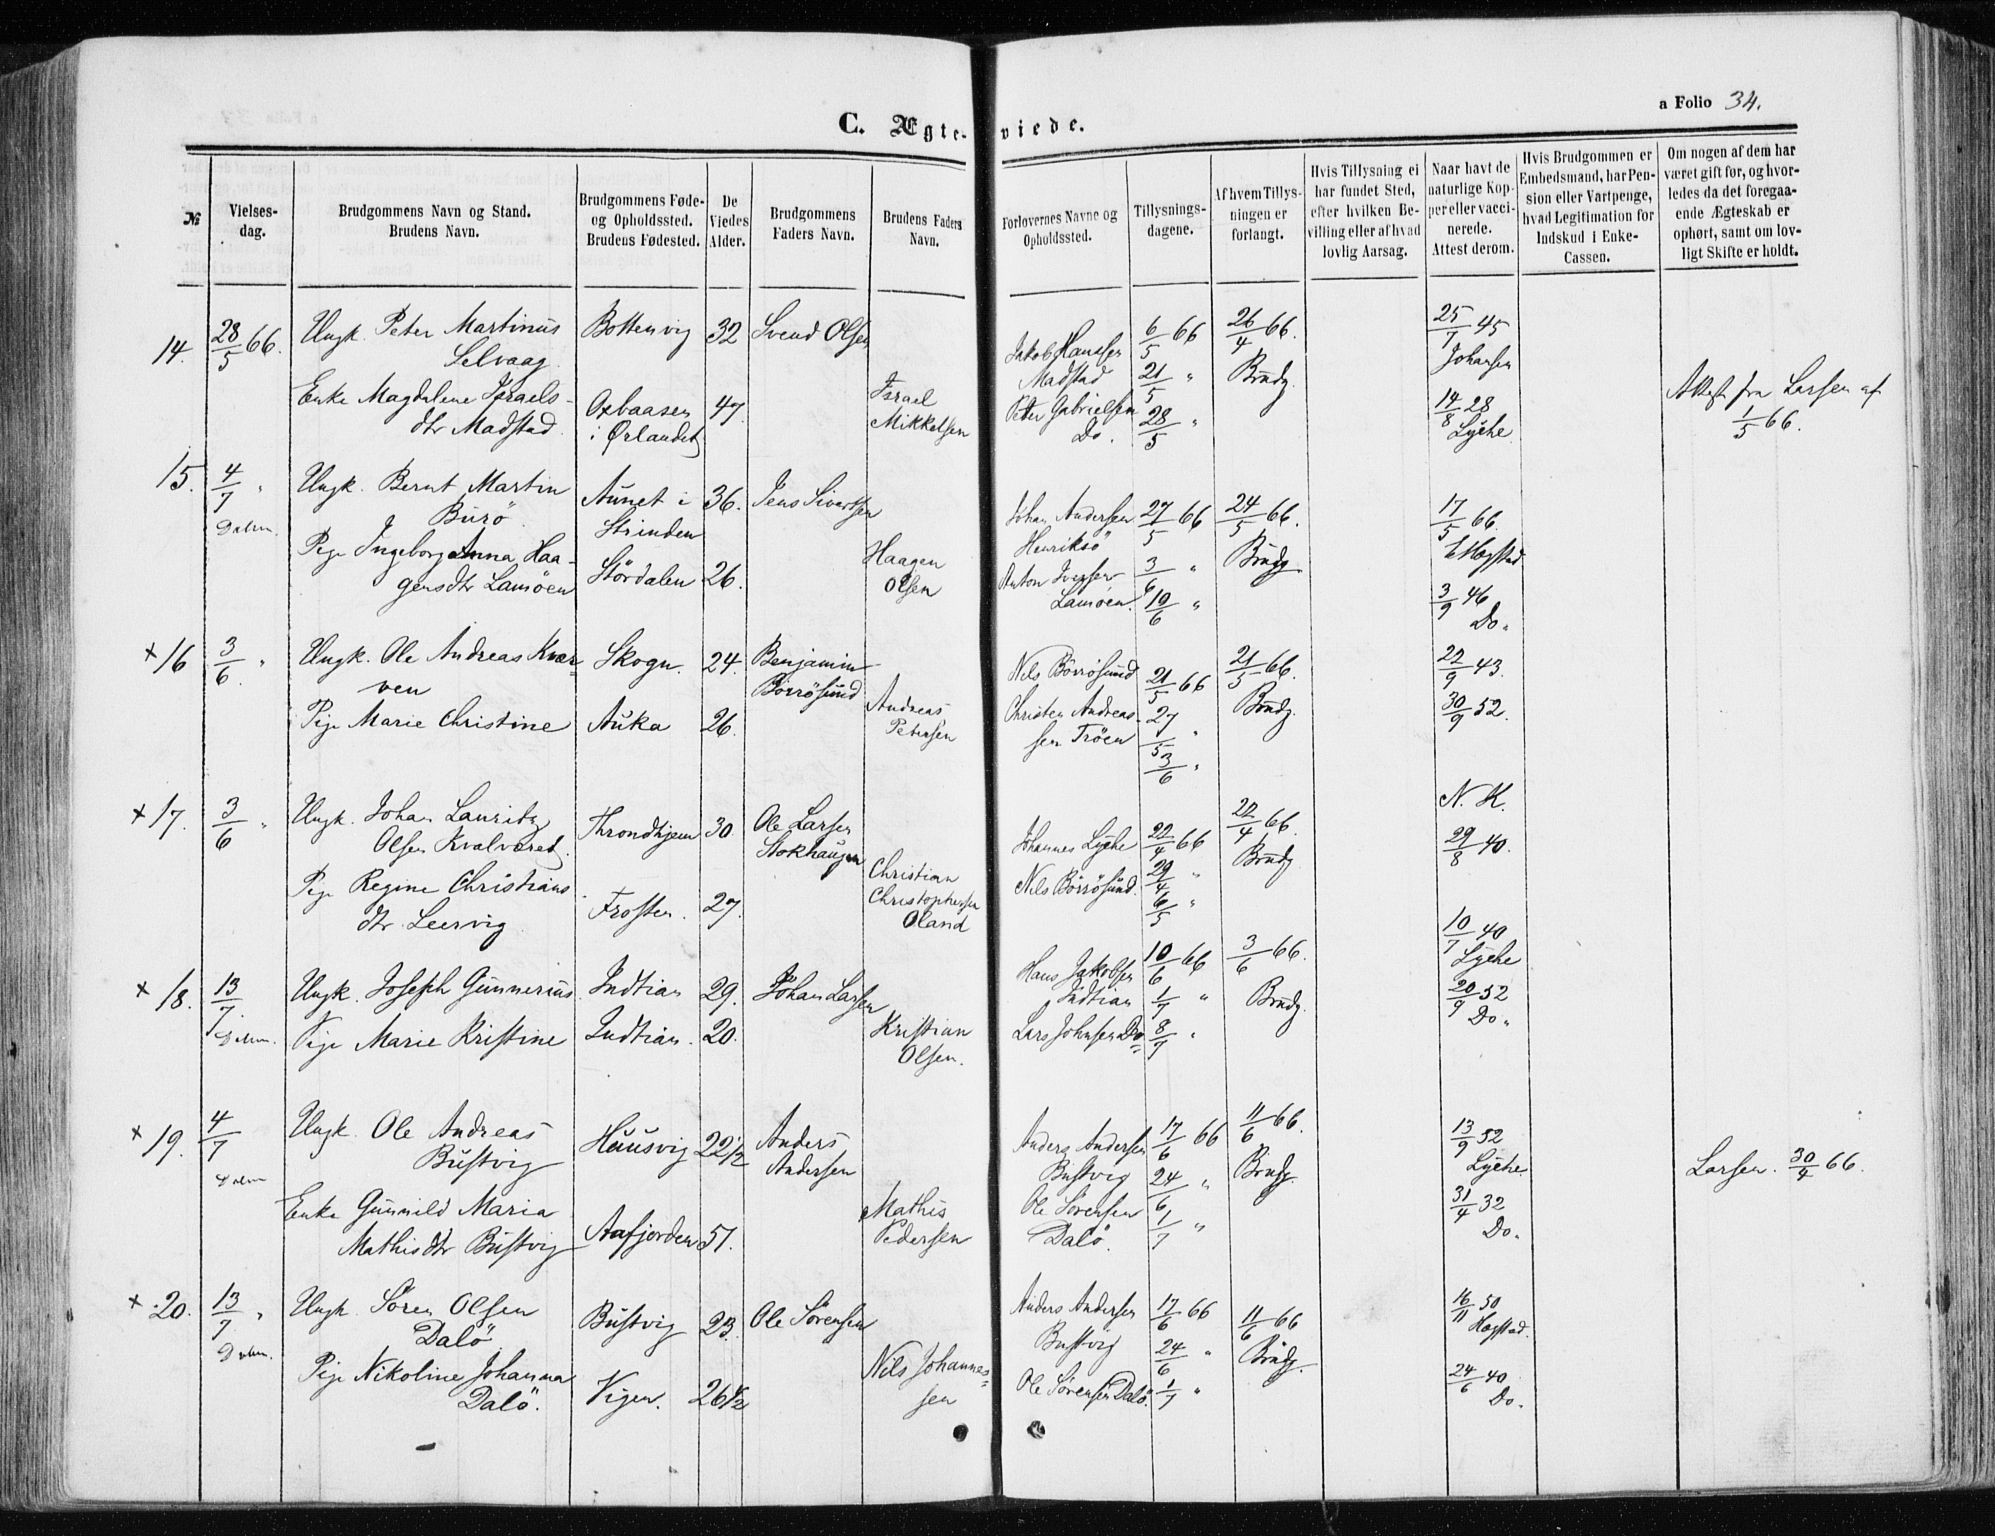 a Folio 34.
C. Ægteviede.
№
Vielsesdag.
Brudgommens Navn og Stand.
Brudens Navn.
Brudgommens Føde-
og Opholdssted.
Brudens Fødested.
De
Viedes
Alder.
Brudgommens
Faders Navn.
Brudens Faders
Navn.
Forlovernes Navne og
Opholdssted.
Tillysnings-
dagene.
Af hvem Tillys-
ningen er
forlangt.
Hvis Tillysning ei
har fundet Sted,
efter hvilken Be-
villing eller af hvad
lovlig Aarsag.
Naar havt de
naturlige Kop-
per eller vacci-
nerede.
Attest derom.
Hvis Brudgommen er
Embedsmand, har Pen-
sion eller Vartpenge,
hvad Legitimation for
Indskud i Enke-
Cassen.
Om nogen af dem har
været gift før, og hvor-
ledes da det foregaa-
ende Ægteskab er
ophørt, samt om lov-
ligt Skifte er holdt.
14. 28/5 66. Ungk. Peter Martinus Bottenvig 32 Svend Olsen
Selvaag
Enke Magdalene Israels- Oxbaasen 47. Israel
dtr Madstad i Ørlandet Mikkelsen
Jakob Hansen 6/5 66 26/4 66. 25/7 45
Madstad 21/5 " Brudg. Johansen
Peter Gabrielsen 28/5 " 14/8 28
Do. Lyche
Attest fra Larsen af
1/5 66.
15. 4/7 " Ungk. Bernt Martin Aunet i 36. Jens Sivertsen
Burö Strinden
Pige Ingeborg Anna Haa- Stördalen 26. Haagen
gensdtr Lamöen Olsen
Johan Andersen 27/5 66 24/5 66. 17/5 66.
Henriksö 3/6 " Brudg.
Anton Iversen 10/6 " 3/9 46
Lamöen. Do.
+ 16 3/6 " Ungk. Ole Andreas Kvær- Skogn. 24. Benjamin
ven Börrösund
Pige Marie Christine Auka 26. Andreas
Petersen
Nils Börrösund 21/5 66 21/5 66. 22/9 43.
Christen Andreas- 27/5 " Brudg. 30/9 52.
sen Tröen 3/6 "
+ 17. 3/6 " Ungk. Johan Lauritz Throndhjem 30. Ole Larsen
Olsen Kvalværet. Stokhaugen
Pige Regine Christians Frosten. 27. Christian
dtr Leervig Christophersen
Oland
N. K.
Johannes Lyche 22/4 66 22/4 66. 29/8 40.
Nils Börrösund. 29/4 " Brudg.
6/5 "
+ 18. 13/7. Ungk. Joseph Gunnerius Indtian 29. Johan Larsen
Pige Marie Kristine Indtian. 20. Kristian
Olsen.
Hans Jakobsen 10/6 66 3/6 66. 10/7 40
Indtian 1/7 " Brudg. Lyche
Lars Johnsen Do 8/7 " 20/9 52
Do.
+ 19. 4/7 Ungk. Ole Andreas Hausvig 22 1/2 Anders
Bustvig Andersen
Enke Gunnild Maria Aafjorden 51. Mathis
Mathisdtr Bustvig Pedersen
Anders Andersen 17/6 66 11/6 66. 13/9 52
Bustvig 24/6 " Brudg. Lyche
Ole Sörensen 1/7 " 31/4 32
Dalö. Do.
Larsen. 30/4 66.
+ 20. 13/7 " Ungk. Sören Olsen Bustvig 23. Ole Sörensen
Dalö
Pige Nikoline Johanna Vigen. 26 1/2 Nils Johannes-
Dalö. sen
Anders Andersen 17/6 66 11/6 66 16/11 50
Bustvig 24/6 " Brudg. Hagstad.
Ole Sörensen Dalö. 1/7 " 24/6 40
Do.